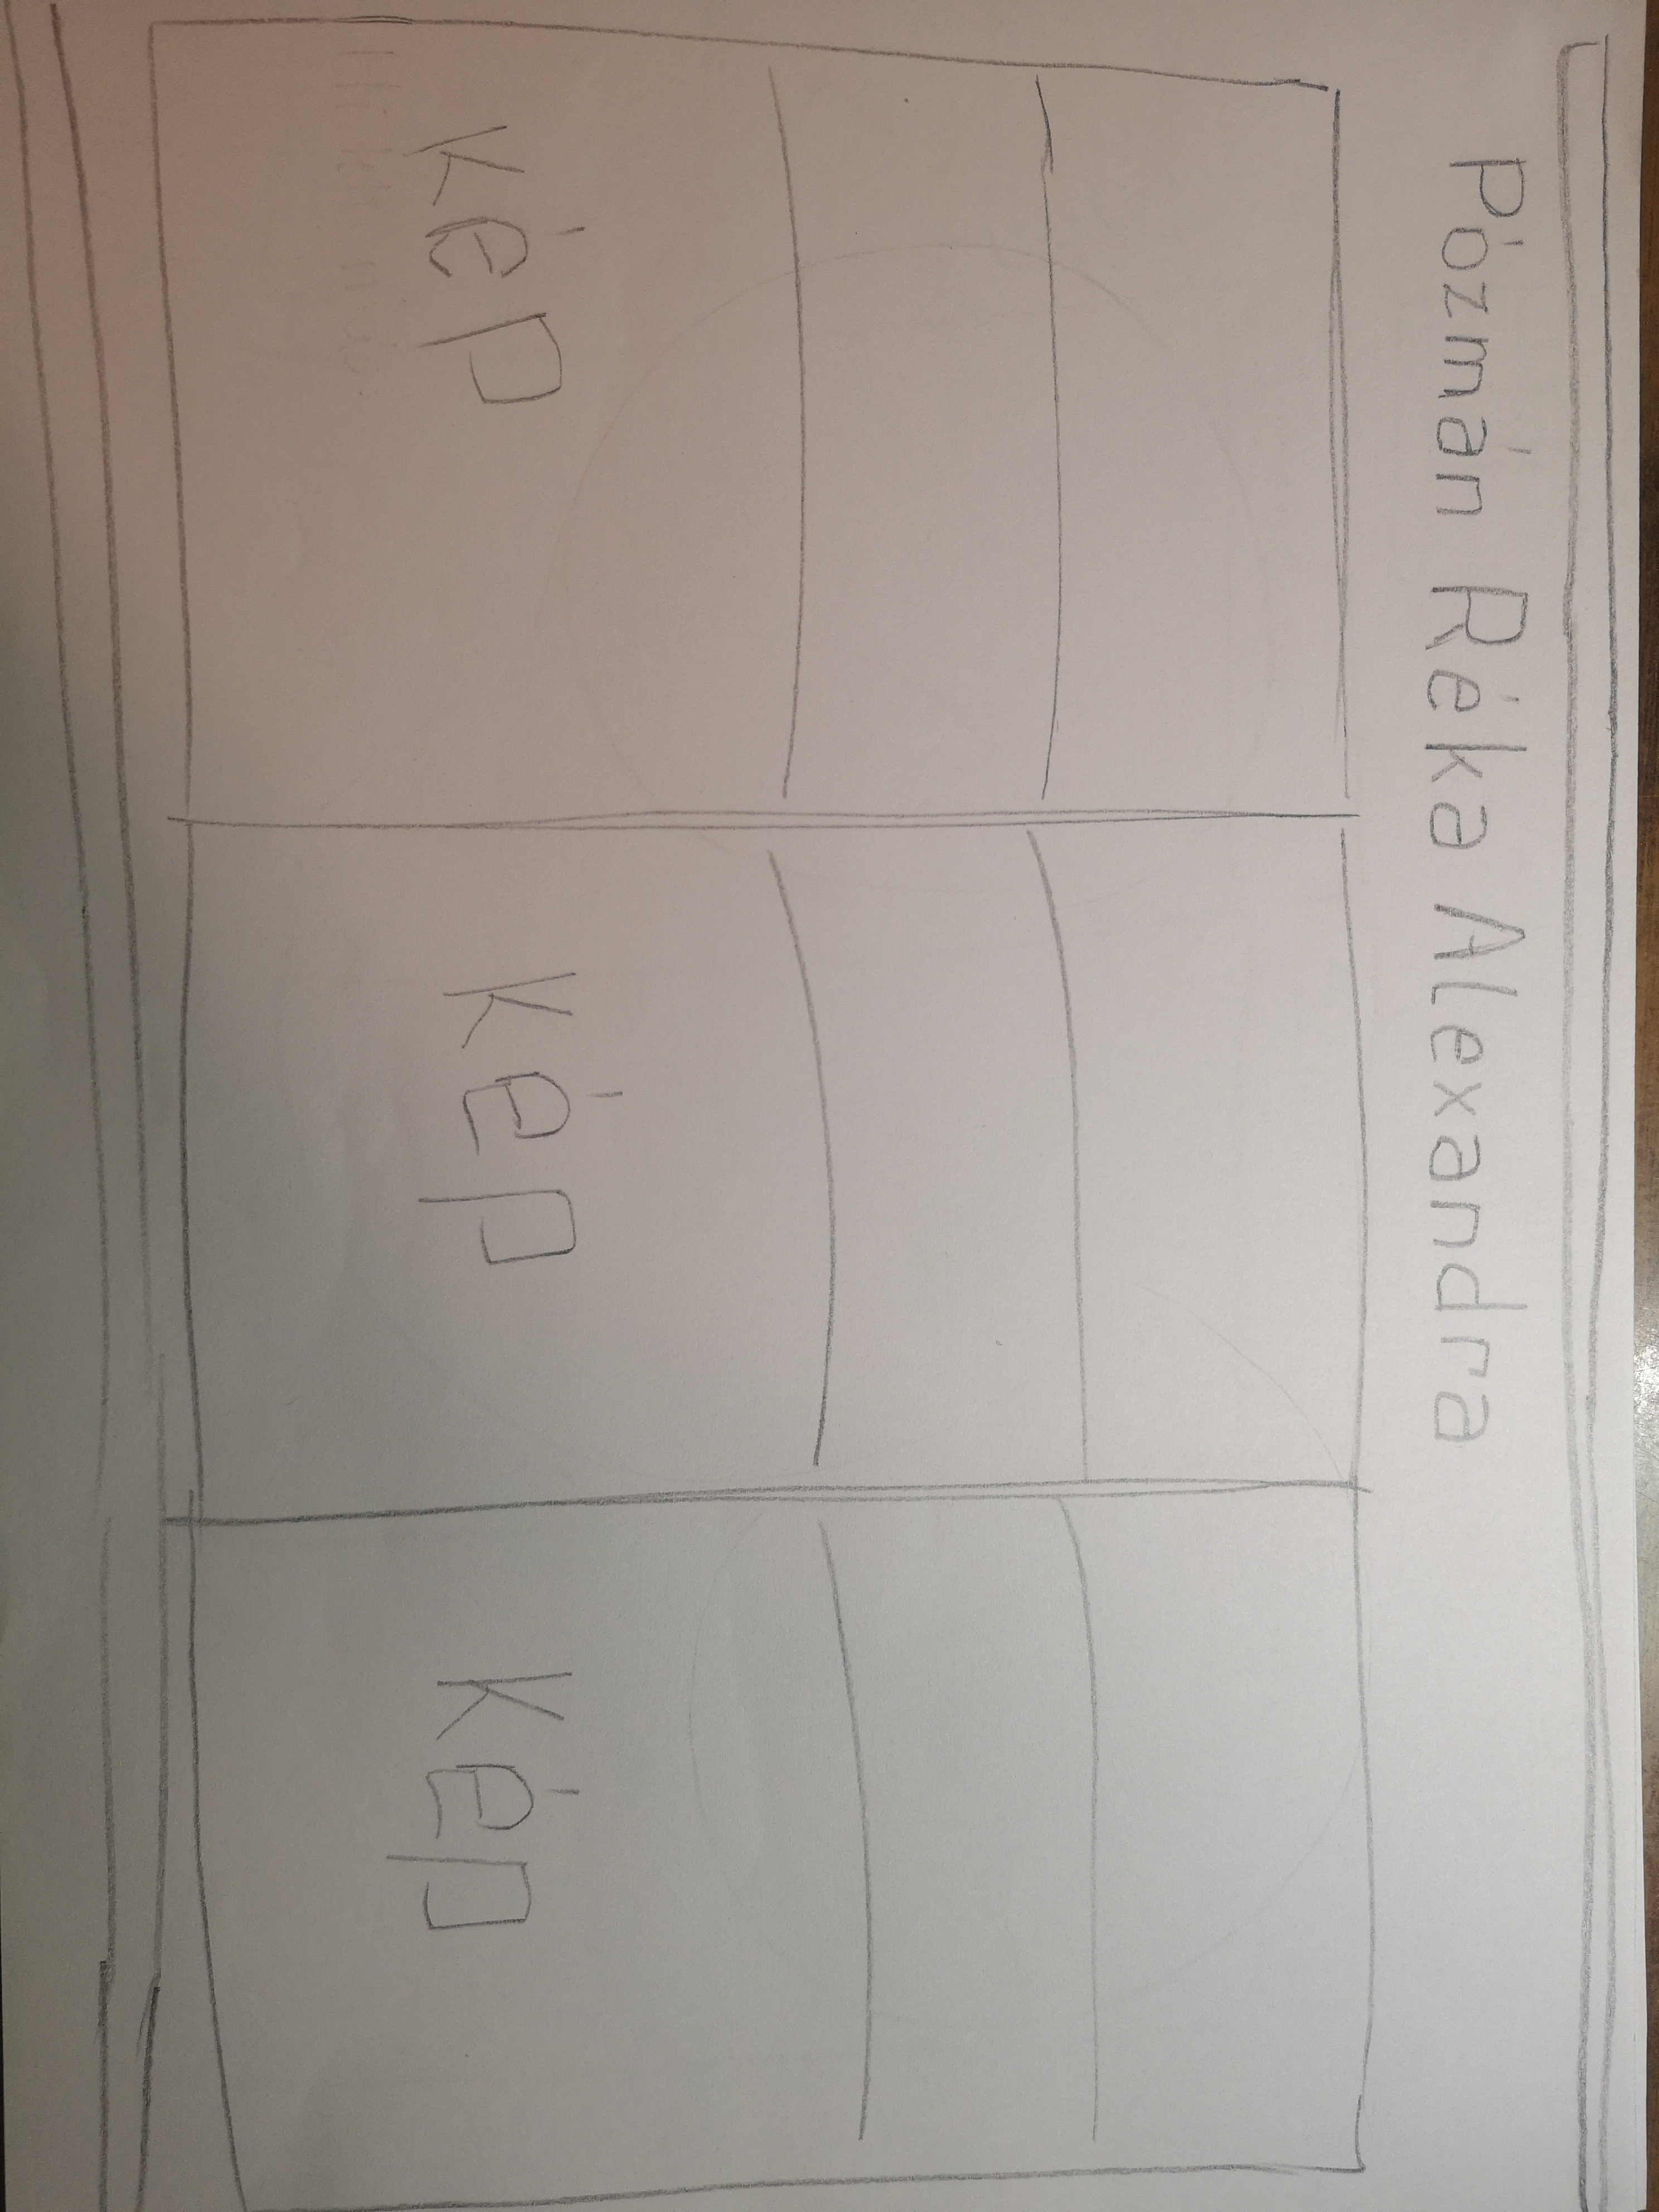 Pózmán Réka Alexandra
Kép
Kép
Kép